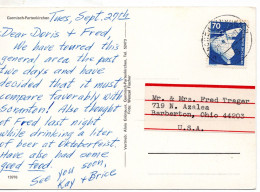 Garmisch-Partenkirchen
Tues, Sept. 27th
Dear Doris + Fred,
We have toured this
general area the past
two days and have
decided that it must
compare favorably with
Scranton! Also thought
of Fred last night
while drinking a liter
of beer at Oktoberfest.
Have also had some
good food.
See you soon,
Kay + Brice
70
Mr. & Mrs. Fred Trager
719 N. Azalea
Barberton, Ohio 44203
U.S.A.